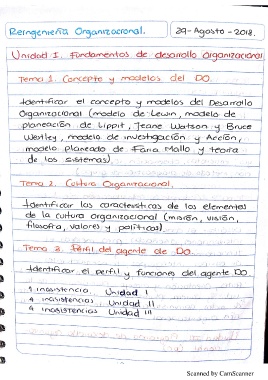 Reingeniería Organizacional. 29-Agosto-2018.
Unidad I. Fundamentos de desarrollo Organizacional
Tema 1. Concepto y modelos del DO.
Identificar el concepto y modelos del Desarrollo
Organizacional (modelo de Lewin, modelo de
planeación de Lippit, Jeane Watson y Bruce
Westley, modelo de investigación y Acción,
modelo planeado de Faria Mello y teoría
de los sistemas).
Tema 2. Cultura Organizacional.
Identificar las características de los elementos
de la cultura organizacional (misión, visión,
filosofía, valores y políticas).
Tema 3. Perfil del agente de DO.
Identificar el perfil y funciones del agente DO
inasistencia Unidad I
4 inasistencias Unidad II
4 inasistencias Unidad III
Scanned by CamScanner